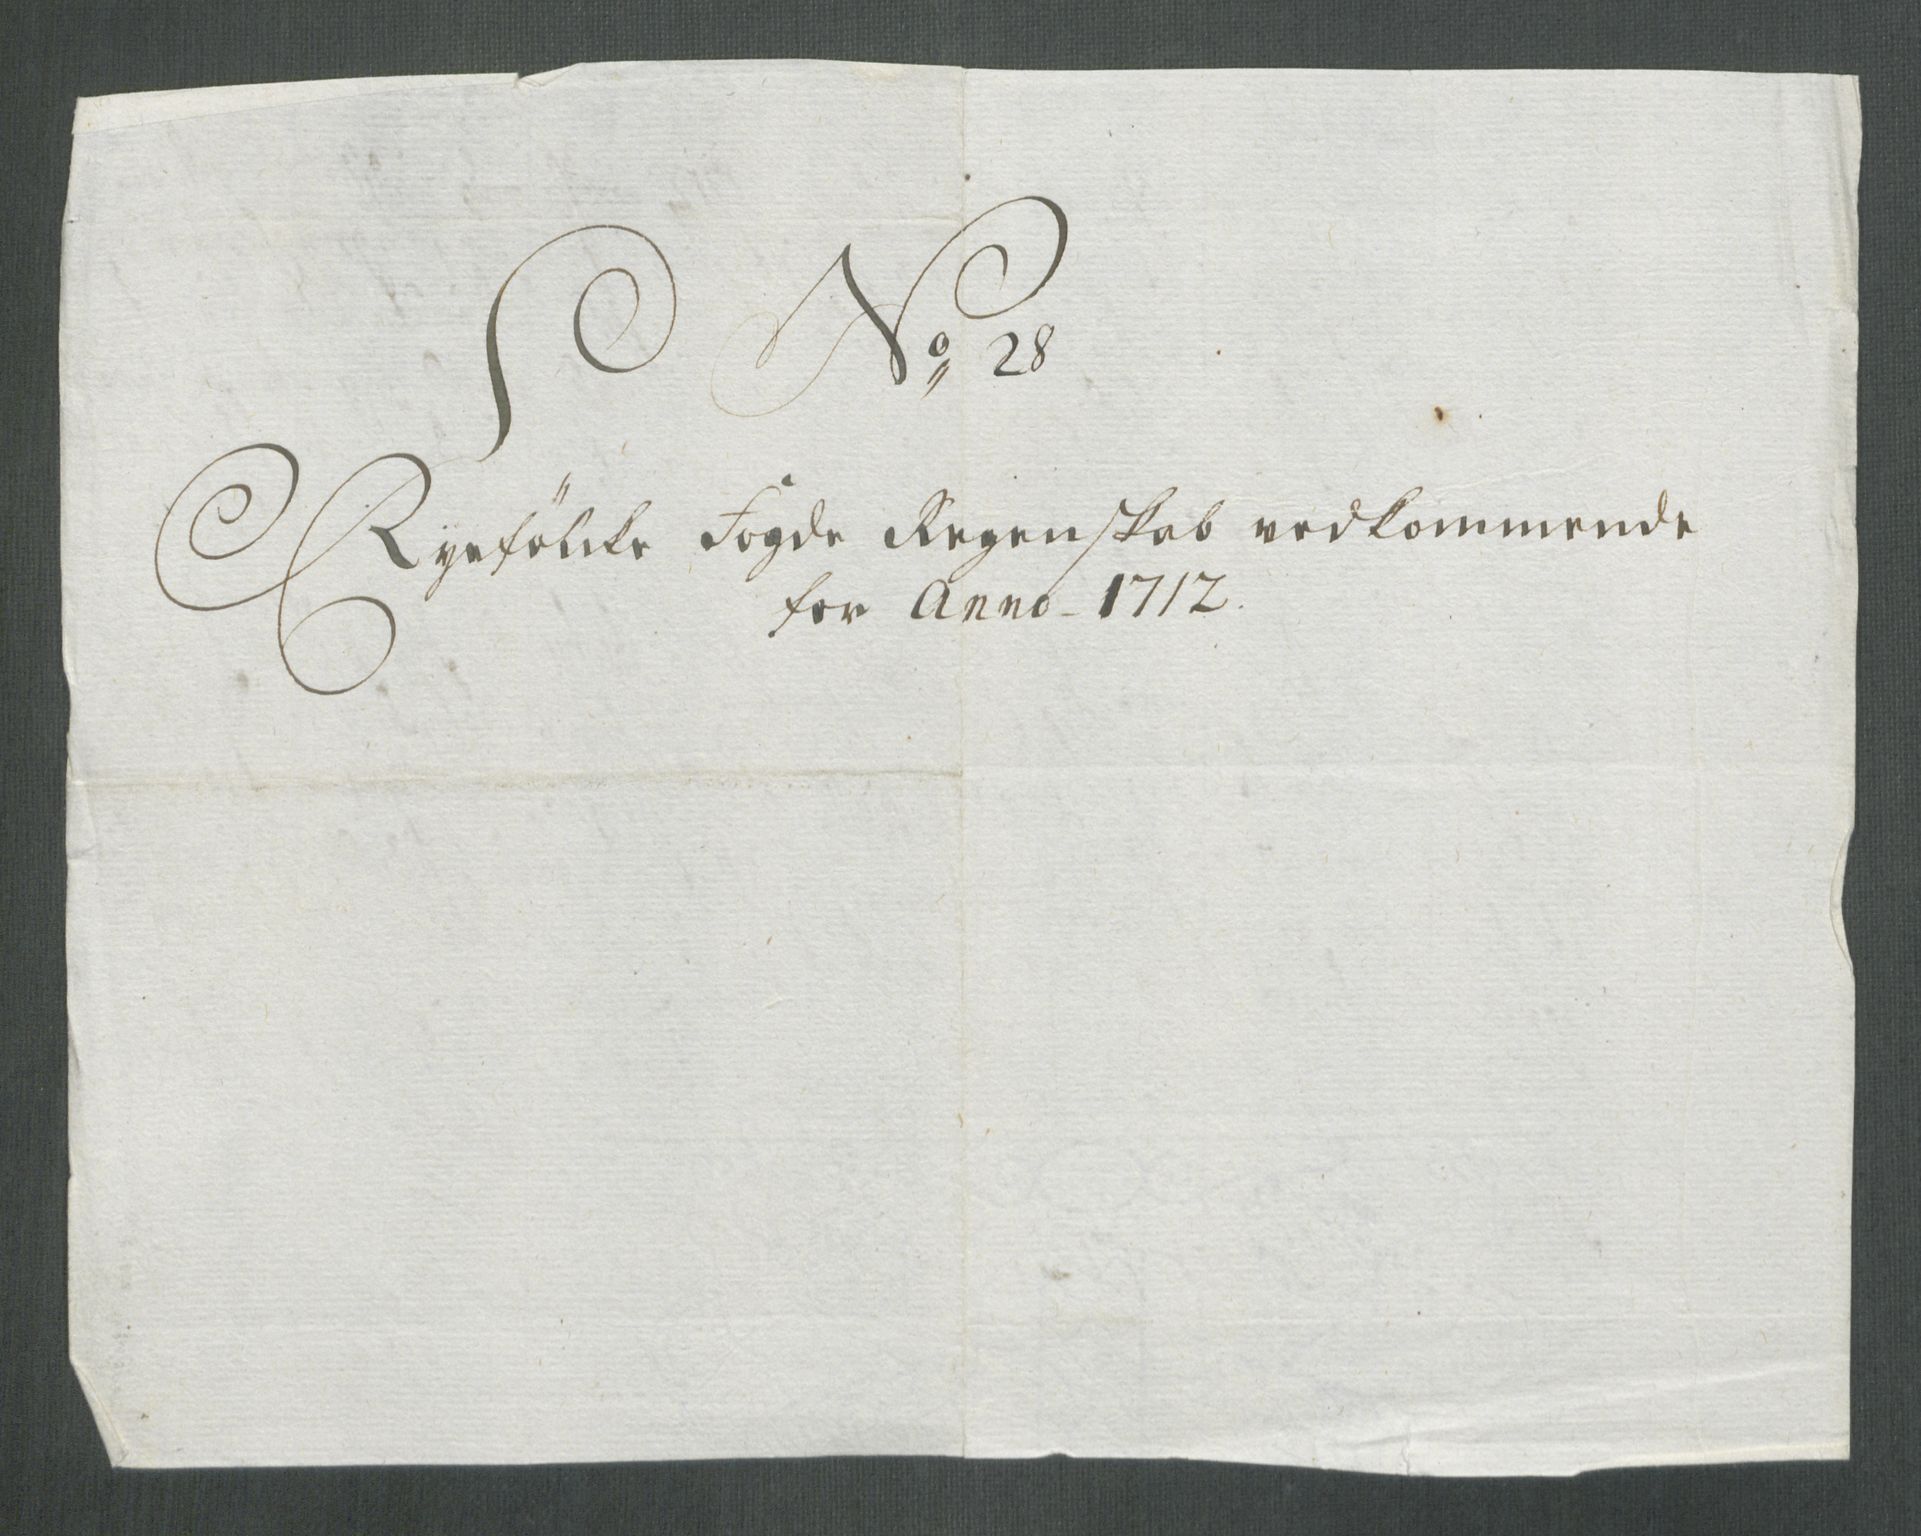 No 28
Ryefölcke Fogde Regenskab vedkommende
for Anno 1712.